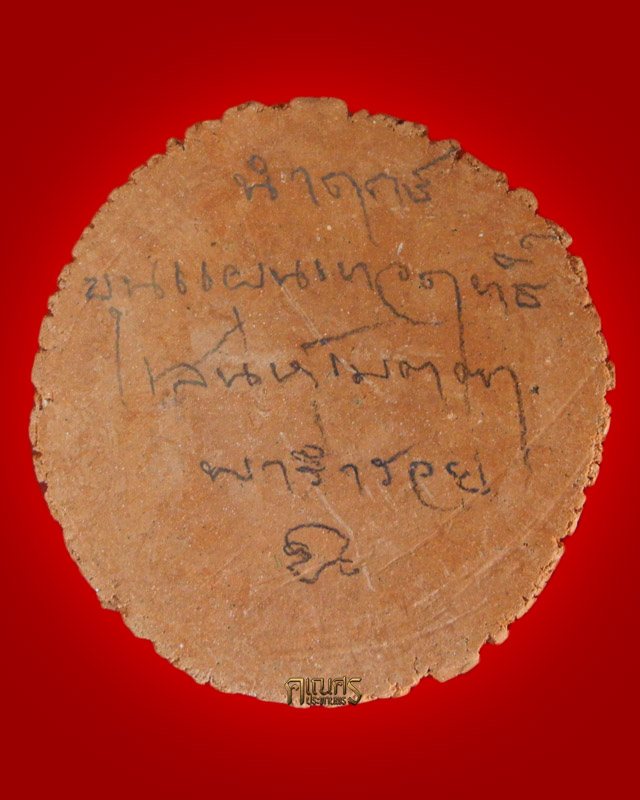 นำฤกษ์
ขุนแผนเทวฤทธิ์
เสน่ห์เมตตา
พาร่ำรวย
คเณศร